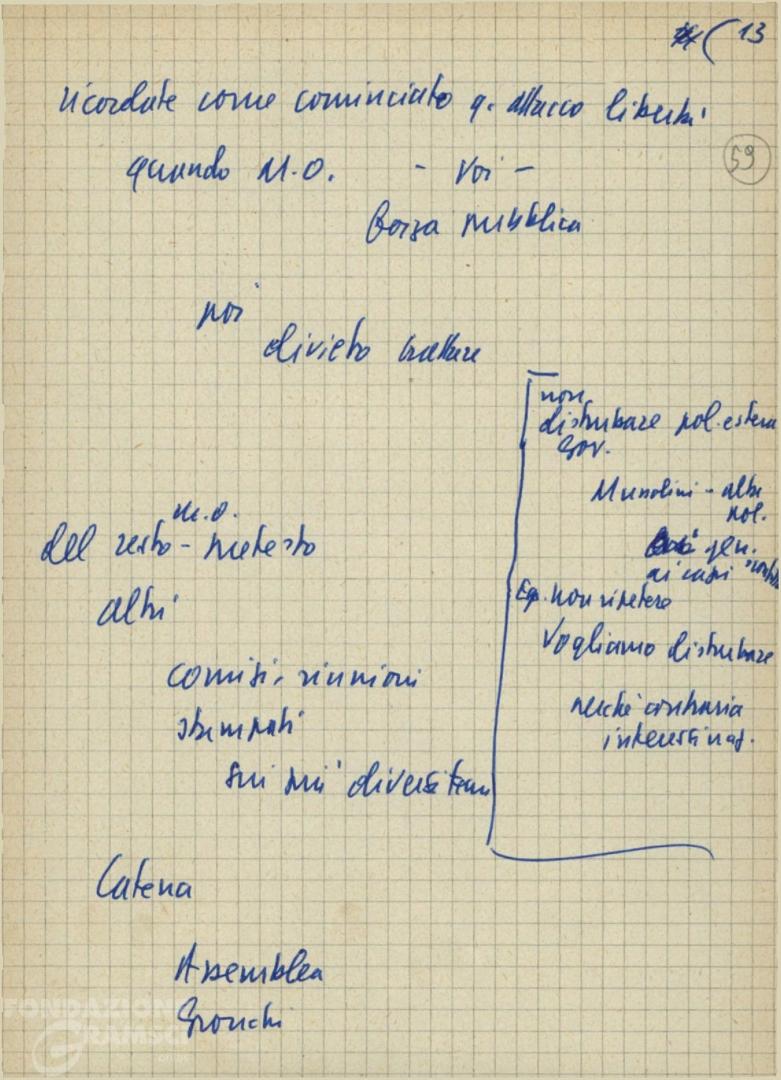 (13
ricordate come cominciato q. attacco libertà
59
quando M.O. - voi -
forza pubblica
poi
divieto trattare
non
disturbare pol. estera
gov.
Mussolini - altri
pol.
gen.
ai capi
non ripetere
Vogliamo disturbare
perché contraria
interessi naz.
m.o.
del resto - pretesto
altri
comizi, riunioni
stampati
sui più diversi temi
Catena
Assemblea
Gronchi
FONDAZIONE
GRAMSCI